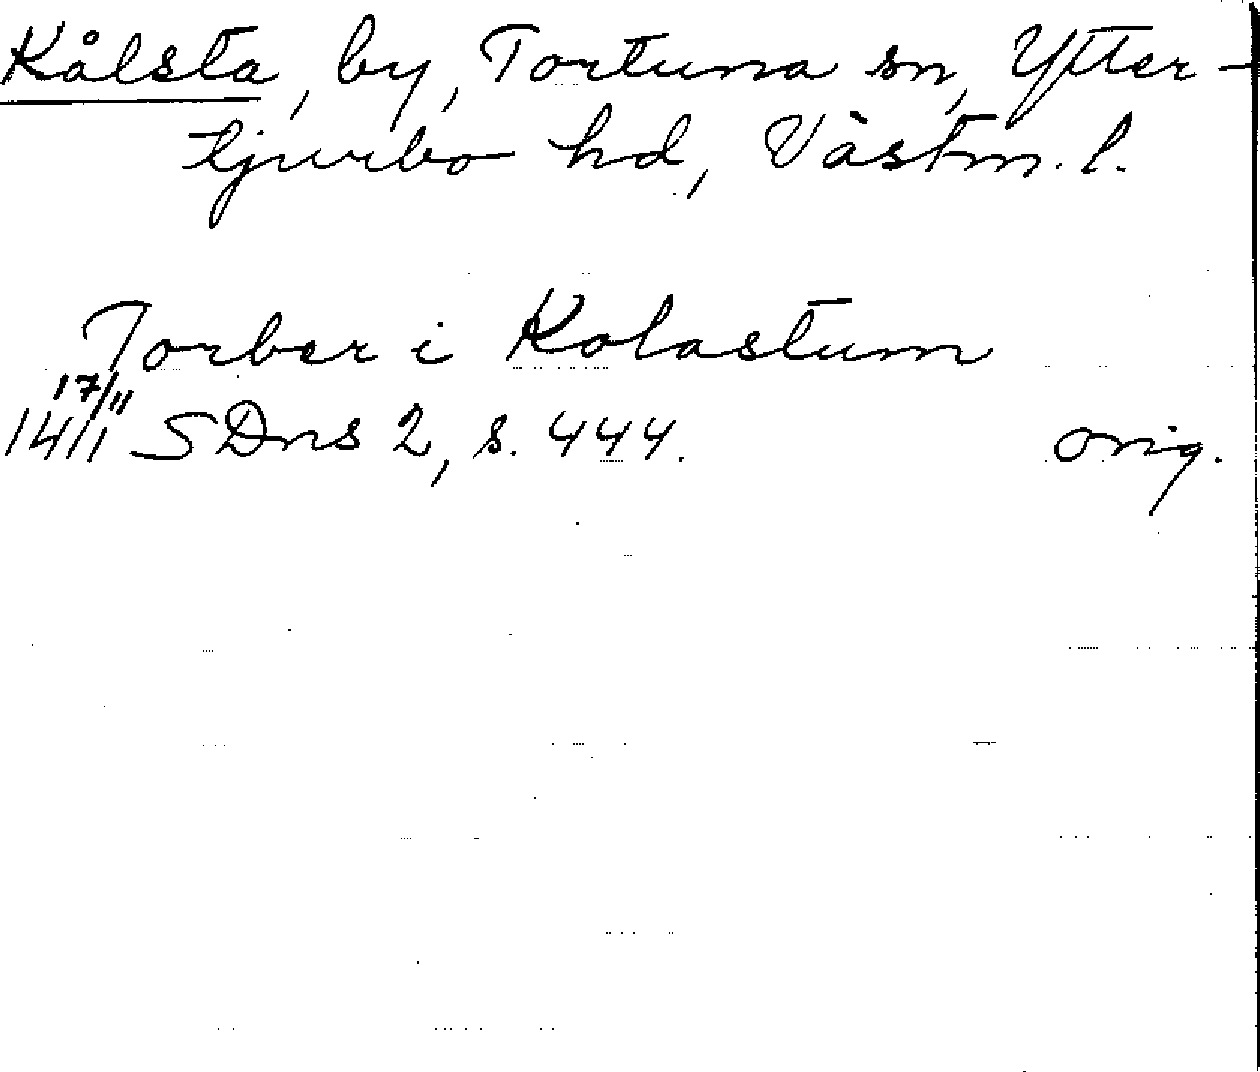 Kålsta, by, Tortuna sn, Ytter-
tjurbo hd, Västm. l.
Torber i Kolastum
17/11
1411 SDns 2, s. 444. orig.